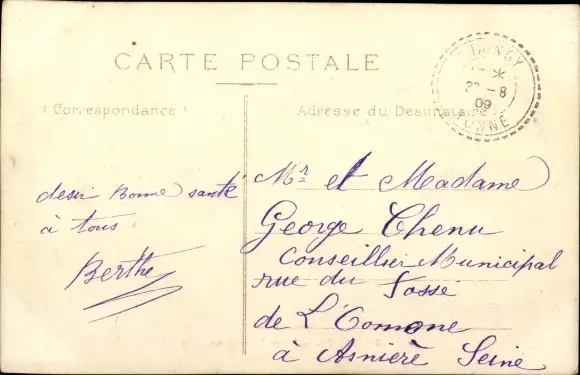 CARTE POSTALE
Correspondance
Adresse du Destinataire
* 
-8
09
YONNE
desir Bonne santé
à tous
Berthe
Mr et Madame
George Chenu
Conseiller Municipal
rue du Fossé
de L'Eomone
à Asnière Seine